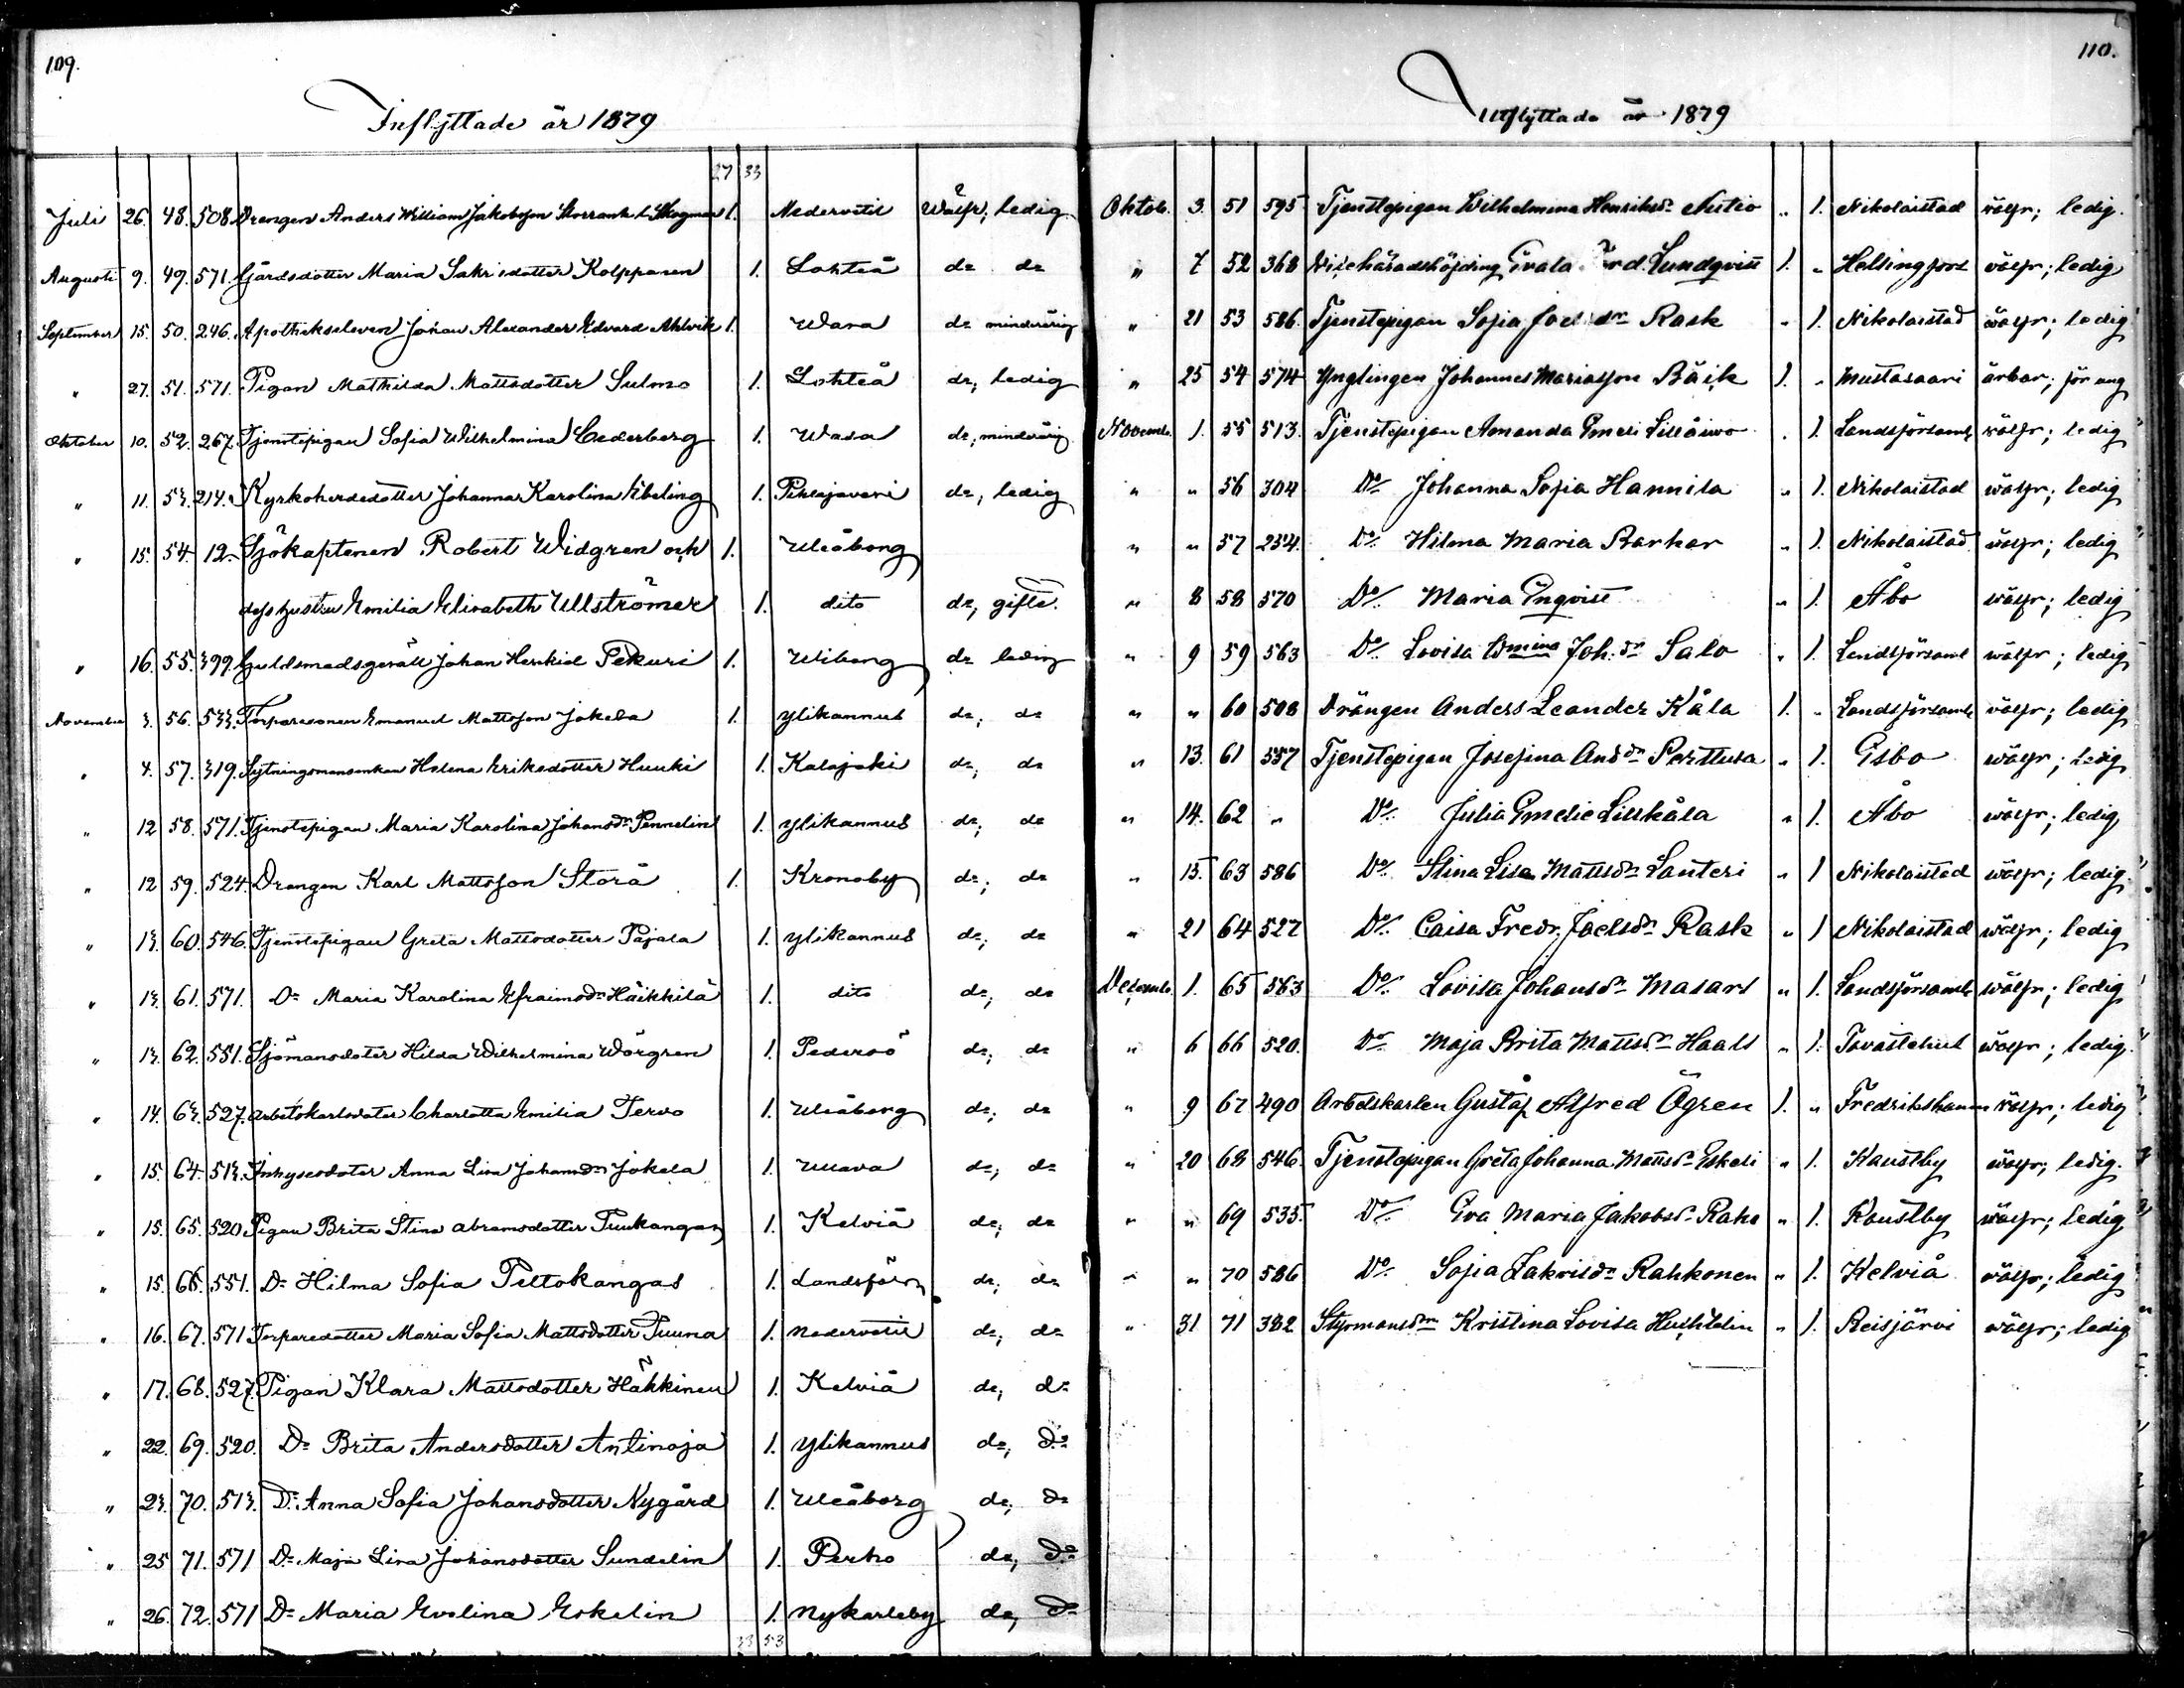 109.
Inflyttade år 1879
27 33
Juli 26. 48. 508. Drengen Anders William Jakobsson Storrank l. Skogman 1. Nedervetil Wälfr; ledig
Augusti 9. 49. 571. Gårdsdotter Maria Sakrisdotter Kolpponen 1. Lohteå do do
September 15. 50. 246. Apotekseleven Johan Alexander Edvard Ahlvik 1. Wasa do minderårig
" 27. 51. 571. Pigan Mathilda Mattsdotter Sulmo 1. Lohteå do; ledig
Oktober 10. 52. 267. Tjenstepigan Sofia Wilhelmina Cederberg 1. Wasa do; minderårig
" 11. 53. 214. Kyrkoherdedotter Johanna Karolina Ebeling 1. Pihlajaveri do, ledig
" 15. 54. 12. Sjökaptenen Robert Widgren och 1. Uleåborg
dess hustru Emilia Elisabeth Ullströmer 1. dito do, gifte.
" 16. 55. 399. Guldsmedsgesäll Johan Herkiel Pekuri 1. Wiborg do ledig
November 3. 56. 533. Torparesonen Emanuel Mattsson Jokela 1. Ylikannus do; do
" 4. 57. 319. Sytningsmansenkan Helena Eriksdotter Huuki 1. Kalajoki do; do
" 12 58. 571. Tjenstepigan Maria Karolina Johansdr Pennelin 1. Ylikannus do; do
" 12 59. 524. Drengen Karl Mattsson Storå 1. Kronoby do; do
" 13. 60. 546. Tjenstepigan Greta Mattsdotter Pajala 1. Ylikannus do; do
" 13. 61. 571. Do Maria Karolina Efraimsdr Häikkilä 1. dito do; do
" 13. 62. 551. Sjömansdoter Hilda Wilhelmina Wörgren 1. Pedersö do; do
" 14. 63. 527. Arbetskarlsdoter Charlotta Emilia Tervo 1. Uleåborg do; do
" 15. 64. 513. Inhysesdoter Anna Lisa Johansdr Jokela 1. Ullava do; do
" 15. 65. 520. Pigan Brita Stina Abramsdotter Tuukangas 1. Kelviå do; do
" 15. 66. 551. Do Hilma Sofia Peltokangas 1. Landsförs do; do
" 16. 67. 571 Torparedotter Maria Sofia Mattsdotter Tuuna 1. Nedervetil do; do
" 17. 68. 527. Pigan Klara Mattsdotter Häkkinen 1. Kelviå do; do
" 22. 69. 520. Do Brita Andersdotter Antinoja 1. Ylikannus do; Do
" 23. 70. 513. Do Anna Sofia Johansdotter Nygård 1. Uleåborg do; do
" 25 71. 571 Do Maja Lisa Johansdotter Sundelin 1. Perho do; Do
" 26. 72. 571 Do Maria Evelina Eskelin 1. Nykarleby do; Do
33 53
110.
Utflyttade år 1879
Oktob. 3. 51 595 Tjenstepigan Wilhelmina Henriksdr Autio " 1. Nikolaistad wälfr; ledig.
" 7 52 368 Vicehäradshöfding Ferd. Lundqvist 1. " Helsingfors wälfr; ledig
" 21 53 586. Tjenstepigan Sofia Joelsdr Rask " 1. Nikolaistad wälfr; ledig
" 25 54 574 Ynglingen Johannes Mariasson Bäck 1. " Mustasaari ärbar; för ung
Novemb. 1. 55 513. Tjenstepigan Amanda Emeli Lillåivo " 1. Landsförsaml wälfr; ledig
" " 56 304 Do Johanna Sofia Hannila " 1. Nikolaistad wälfr; ledig
" " 57 254. Do Hilma Maria Barkar " 1. Nikolaistad wälfr; ledig
" 8 58 570 Do Maria Enqvist " 1. Åbo wälfr; ledig
" 9 59 563 Do Lovisa Wmina Joh.dr Salo " 1. Landsförsaml wälfr; ledig
" " 60 508 Drängen Anders Leander Kåla 1. " Landsförsaml wälfr; ledig
" 13. 61 557 Tjenstepigan Josefina Andsdr Perttula " 1. Esbo wälfr; ledig
" 14. 62 " Do Julia Emelie Lillkåla " 1. Åbo wälfr; ledig
" 15. 63 586 Do Stina Lisa Mattsdr Santeri " 1 Nikolaistad wälfr; ledig
" 21 64 527 Do Caisa Fredr. Joelsdr Rask " 1 Nikolaistad wälfr; ledig
Decemb. 1. 65 563 Do Lovisa Johansdr Masars " 1. Landsförsaml wälfr; ledig
" 6 66 520. Do Maja Brita Mattsdr Haals " 1. Tavastehus wälfr; ledig.
" 9 67 490 Arbetskarlen Gustaf Alfred Ögren 1. " Fredrikshamn wälfr; ledig
" 20 68 546. Tjenstepigan Greta Johanna Mattsdr Eskeli " 1. Kaustby wälfr; ledig.
" " 69 535. Do Eva Maria Jakobsdr Raho " 1. Kaustby wälfr; ledig
" " 70 586 Do Sofia Zakrisdr Rahkonen " 1. Kelviå wälfr; ledig
" 31 71 382 Styrmansdr Kristina Lovisa " 1. Reisjärvi wälfr; ledig